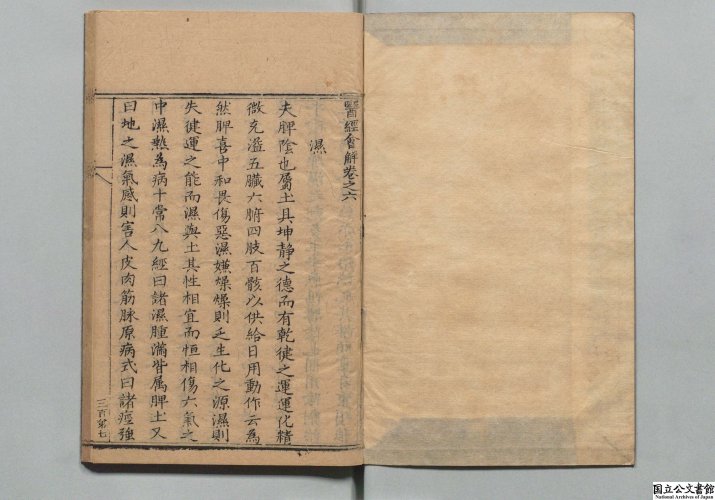 醫經會解卷之六
濕
夫脾陰也屬土具坤靜之德而有乾健之運運化精
微充溢五臟六腑四肢百骸以供給日用動作云為
然脾喜中和畏傷惡濕嫌燥燥則乏生化之源濕則
失健運之能而濕與土其性相宜而恒相傷六氣之
中濕熱為病十常八九經曰諸濕腫滿皆屬脾土又
曰地之濕氣感則害人皮肉筋脉原病式曰諸痙強
三百第七
国立公文書館
National Archives of Japan